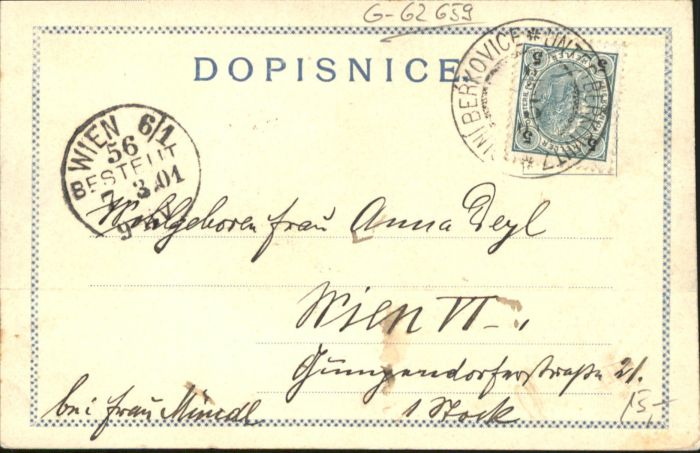 G-62 659
DOPISNICE
DOLNÍ BEŘKOVICE * UNTER
5 5
WIEN 6/1
56
BESTELLT
7.3.01
9
Wohlgeboren Frau Anna Deyl
Wien VI.
Gumpendorferstraße 21.
bei Frau Mündl
1 Stock
15,-